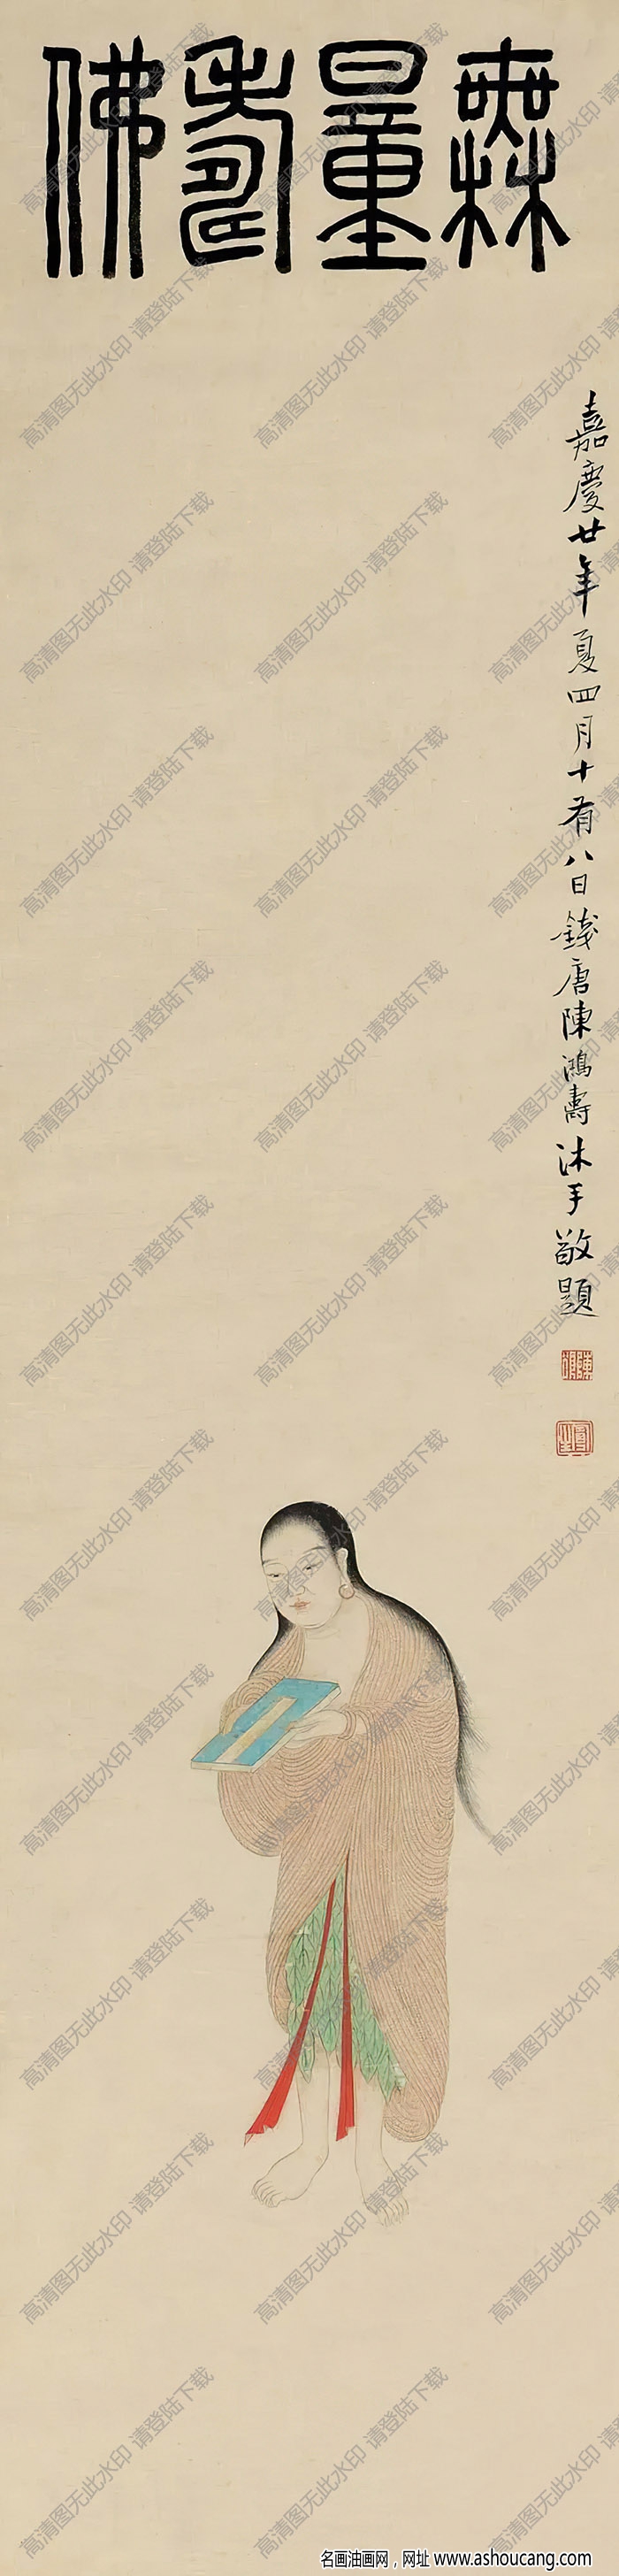 無量壽佛
嘉慶廿年夏四月十有八日錢唐陳鴻壽沐手敬題
高清图无此水印 请登陆下载
名画油画网，网址 www.ashoucang.com